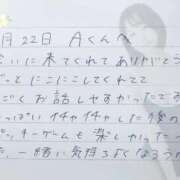 月22日 Aくんへ
いに来てくれてありがとう
ってにこにこしてくれて
ごくお話しやすかったです
っぱいイチャイチャした後の
ゲームも楽しかった
た。一緒に気持ちよくなろう